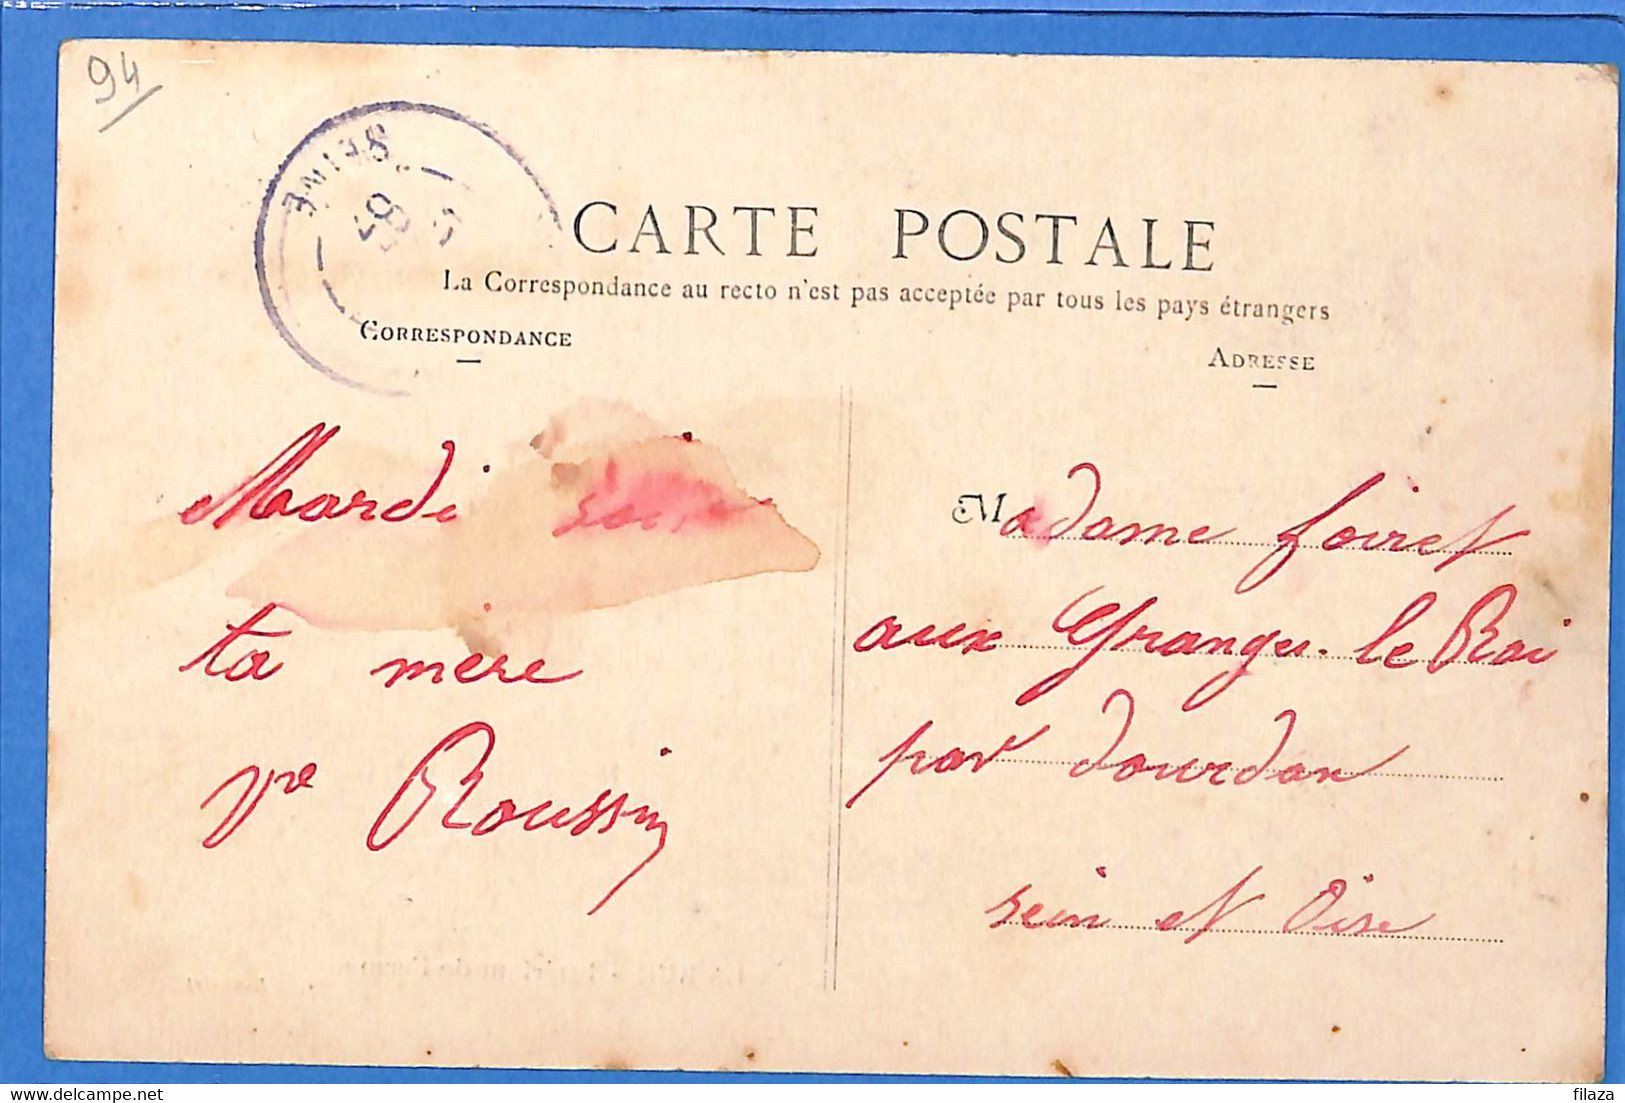 94
SEINE
CARTE POSTALE
La Correspondance au recto n'est pas acceptée par tous les pays étrangers
CORRESPONDANCE
ADRESSE
Mardi soir
ta mère
Vve Roussin
Madame Foiret
aux Granges-le Roi
par Dourdan
Sein et Oise
www.delcampe.net
filaza